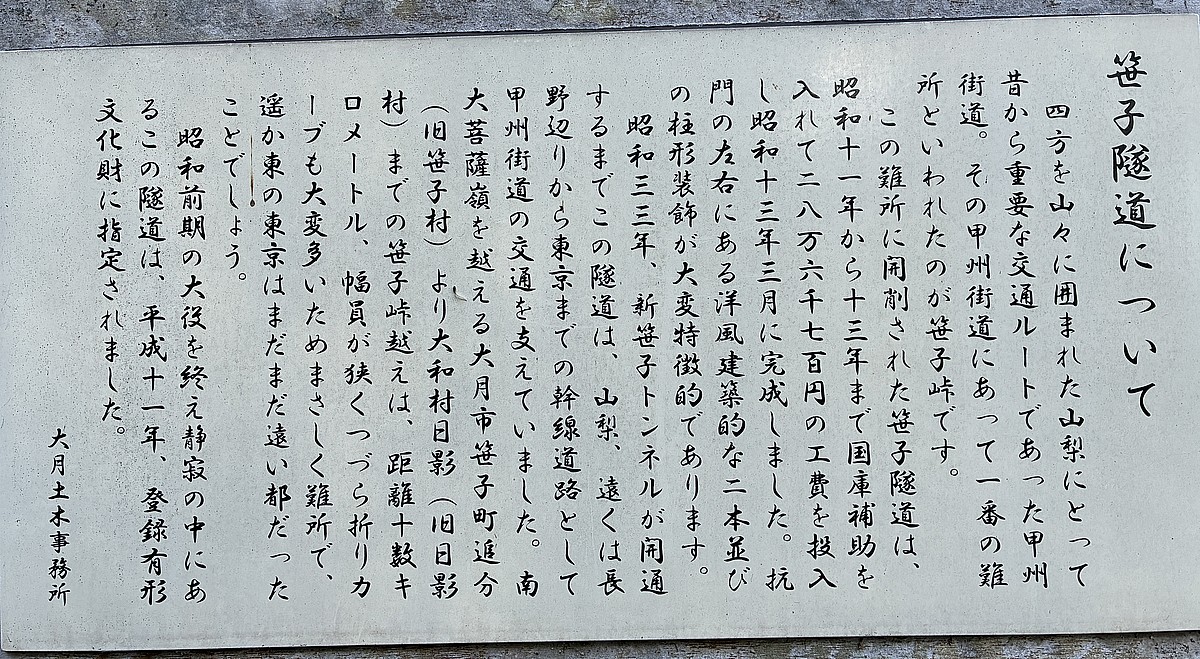 笹子隧道について
四方を山々に囲まれた山梨にとって
昔から重要な交通ルートであった甲州
街道。その甲州街道にあって一番の難
所といわれたのが笹子峠です。
この難所に開削された笹子隧道は、
昭和十一年から十三年まで国庫補助を
入れて二八万六千七百円の工費を投入
し昭和十三年三月に完成しました。抗
門の左右にある洋風建築的な二本並び
の柱形装飾が大変特徴的であります。
昭和三三年、新笹子トンネルが開通
するまでこの隧道は、山梨、遠くは長
野辺りから東京までの幹線道路として
甲州街道の交通を支えていました。南
大菩薩嶺を越える大月市笹子町追分
(旧笹子村)より大和村日影(旧日影
村)までの笹子峠越えは、距離十数キ
ロメートル、幅員が狭くつづら折りカ
ーブも大変多いためまさしく難所で、
遥か東の東京はまだまだ遠い都だった
ことでしょう。
昭和前期の大役を終え静寂の中にあ
るこの隧道は、平成十一年、登録有形
文化財に指定されました。
大月土木事務所